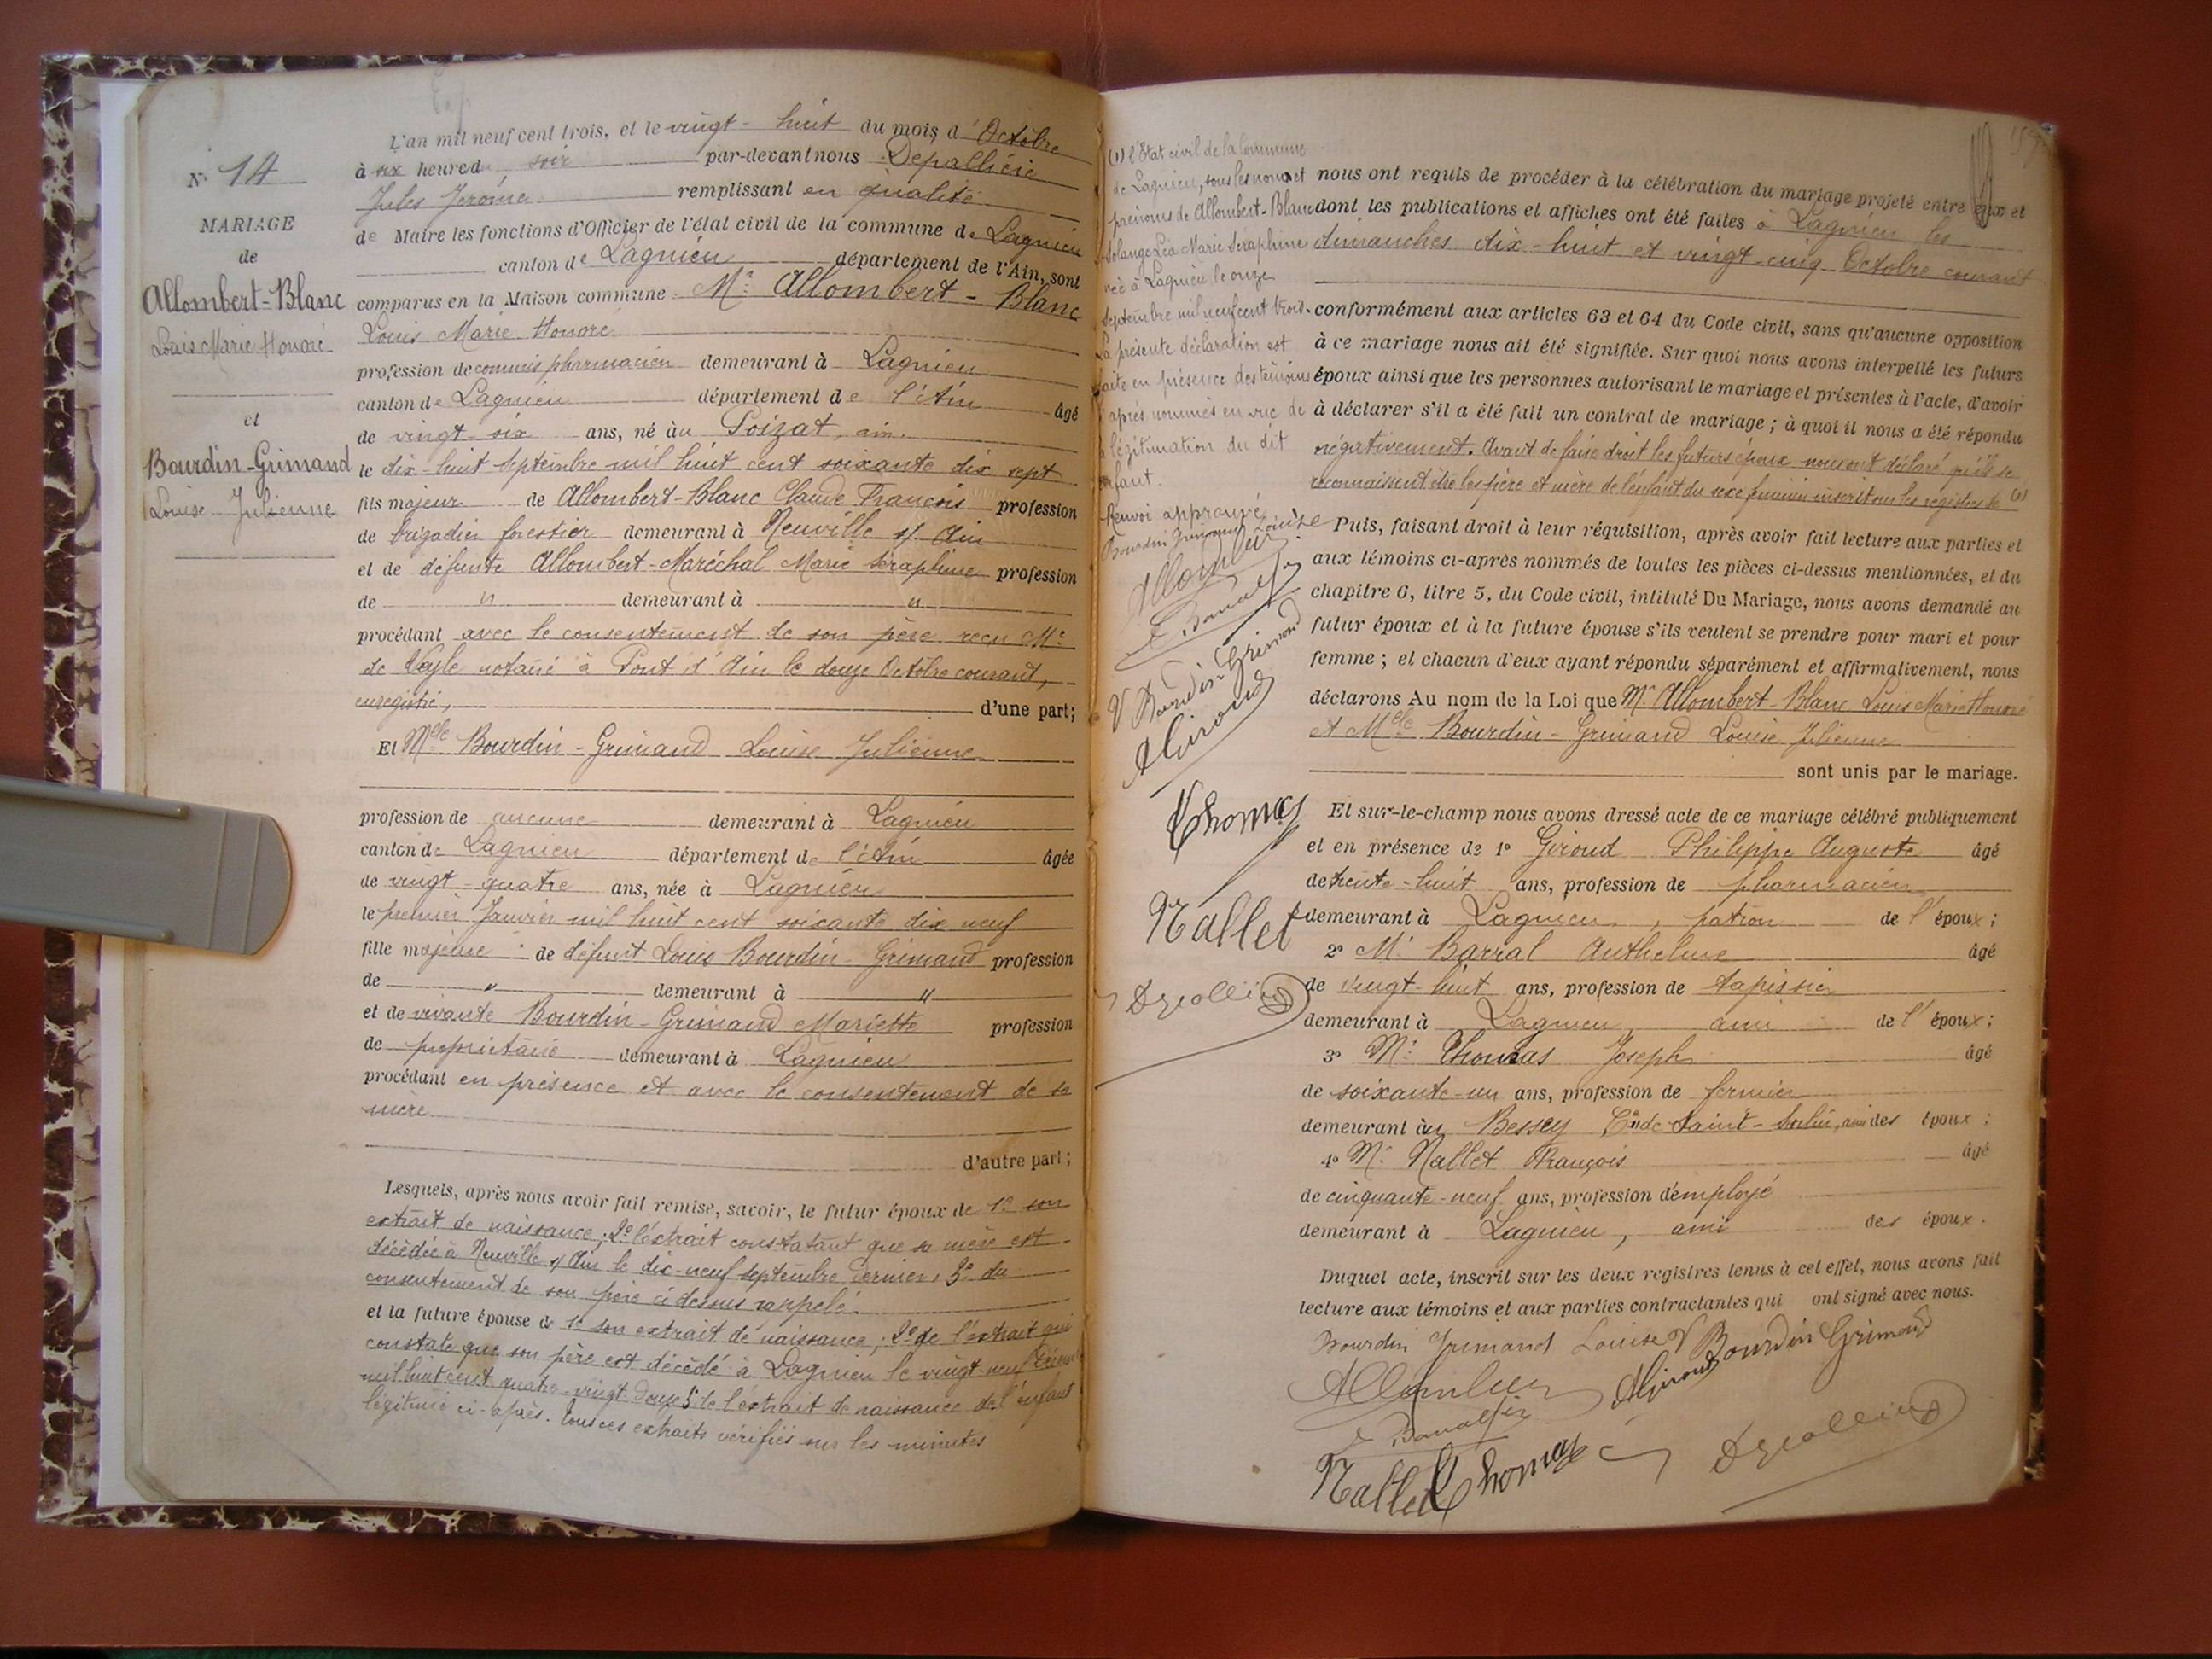 N° 14
MARIAGE
de
Allombert-Blanc
Louis Marie Honoré
et
Bourdin-Grimaud
Louise Julienne
L'an mil neuf cent trois, et le vingt-huit du mois d'Octobre
à six heures du soir par-devant nous Depallière
Jules Jérôme remplissant en qualité
de Maire les fonctions d'Officier de l'état civil de la commune de Lagnieu
canton de Lagnieu département de l'Ain, sont
comparus en la Maison commune Mr Allombert-Blanc
Louis Marie Honoré
profession de commis pharmacien demeurant à Lagnieu
canton de Lagnieu département de l'Ain âgé
de vingt-six ans, né au Poizat, ain.
le dix-huit septembre mil huit cent soixante dix sept
fils majeur de Allombert-Blanc Claude François profession
de brigadier forestier demeurant à Neuville s/ Ain
et de défunte Allombert-Maréchal Marie Séraphine profession
de " demeurant à "
procédant avec le consentement de son père reçu Me
de Veyle notaire à Pont d'Ain le douze Octobre courant,
enregistré, d'une part;
Et Melle Bourdin-Grimaud Louise Julienne
profession de aucune demeurant à Lagnieu
canton de Lagnieu département de l'Ain âgée
de vingt-quatre ans, née à Lagnieu
le premier Janvier mil huit cent soixante dix neuf
fille majeure de défunt Louis Bourdin-Grimaud profession
de " demeurant à "
et de vivante Bourdin-Grimaud Mariette profession
de propriétaire demeurant à Lagnieu
procédant en présence et avec le consentement de sa
mère
d'autre part;
Lesquels, après nous avoir fait remise, savoir, le futur époux de 1° son
extrait de naissance; 2° l'extrait constatant que sa mère est
décédée à Neuville s/ Ain le dix-neuf septembre dernier; 3° du
consentement de son père ci dessus rappelé.
et la future épouse de 1° son extrait de naissance; 2° de l'extrait qui
constate que son père est décédé à Lagnieu le vingt-neuf
mil huit cent quatre-vingt douze; 3° de l'extrait de naissance de l'enfant
légitimé ci-après. tous ces extraits vérifiés sur les minutes
(1) l'Etat civil de la commune
de Lagnieu, sous les noms et
prénoms de Allombert-Blanc
Solange Léa Marie Séraphine
née à Lagnieu le onze
septembre mil neuf cent trois.
La présente déclaration est
faite en présence des témoins
ci après nommés en vue de
la légitimation du dit
enfant.
Renvoi approuvé
Bourdin Grimaud Louise
V Bourdin Grimaud
AGiroud
Thomas
Nallet
nous ont requis de procéder à la célébration du mariage projeté entre eux et
dont les publications et affiches ont été faites à Lagnieu les
dimanches dix-huit et vingt-cinq Octobre courant
conformément aux articles 63 et 64 du Code civil, sans qu'aucune opposition
à ce mariage nous ait été signifiée. Sur quoi nous avons interpellé les futurs
époux ainsi que les personnes autorisant le mariage et présentes à l'acte, d'avoir
à déclarer s'il a été fait un contrat de mariage; à quoi il nous a été répondu
négativement. Avant de faire droit les futurs époux nous ont déclaré qu'ils se
reconnaissent être les père et mère de l'enfant du sexe féminin inscrit sur les registres de (1)
Puis, faisant droit à leur réquisition, après avoir fait lecture aux parties et
aux témoins ci-après nommés de toutes les pièces ci-dessus mentionnées, et du
chapitre 6, titre 5, du Code civil, intitulé Du Mariage, nous avons demandé au
futur époux et à la future épouse s'ils veulent se prendre pour mari et pour
femme; et chacun d'eux ayant répondu séparément et affirmativement, nous
déclarons Au nom de la Loi que Mr Allombert-Blanc Louis Marie Honoré
et Melle Bourdin-Grimaud Louise Julienne
sont unis par le mariage.
Et sur-le-champ nous avons dressé acte de ce mariage célébré publiquement
et en présence de 1° Giroud Philippe Auguste âgé
de trente-huit ans, profession de pharmacien
demeurant à Lagnieu, patron de l'époux;
2° Mr Barral Anthelme âgé
de vingt-huit ans, profession de tapissier
demeurant à Lagnieu ami de l'époux;
3° Mr Thomas Joseph âgé
de soixante-un ans, profession de fermier
demeurant au Bessey Cne de Saint-Sorlin, ami des époux;
4° Mr Nallet François âgé
de cinquante-neuf ans, profession d'employé
demeurant à Lagnieu, ami des époux.
Duquel acte, inscrit sur les deux registres tenus à cet effet, nous avons fait
lecture aux témoins et aux parties contractantes qui ont signé avec nous.
Bourdin Grimaud Louise V Bourdin Grimaud
AGiroud
Nallet Thomas